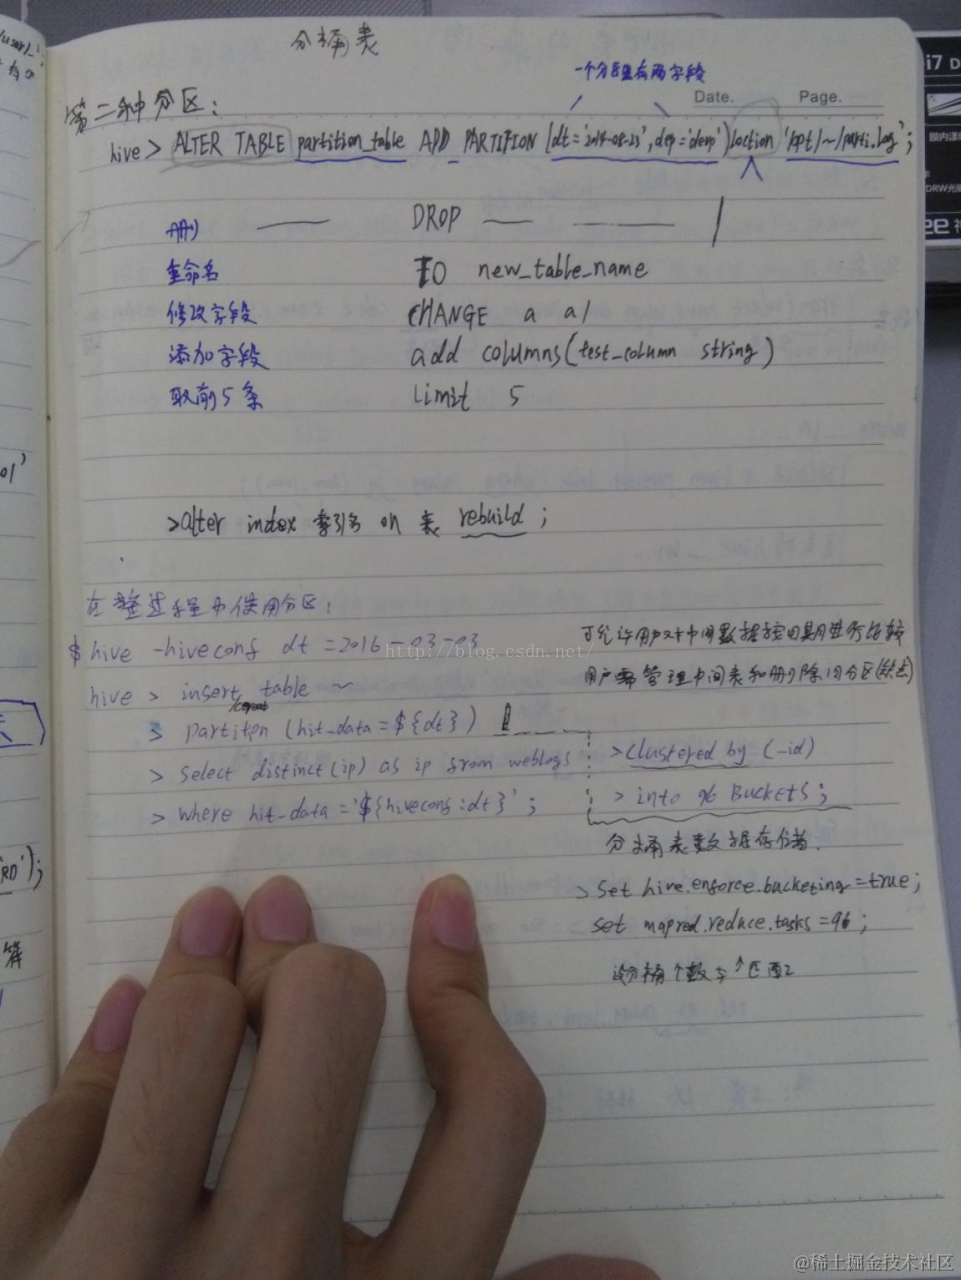 分桶表
一个分区里有两字段
Date. Page.
第二种分区：
hive > ALTER TABLE partition_table ADD PARTITION (dt='2014-08-23', dep='devp') loction '/opt/~/parti.log';
删 DROP
重命名 TO new_table_name
修改字段 CHANGE a a1
添加字段 add columns(test_column string)
取前5条 limit 5
>alter index 索引名 on 表 rebuild;
在整过程中使用分区：
$ hive -hiveconf dt =2016-03-03
可允许用户对中间数据按日期进行比较
http://blog.csdn.net/
hive > insert table ~
用户需管理中间表和删除旧分区(缺点)
> partiton (hit_data=${dt})
> select distinct(ip) as ip from weblogs
> clustered by (_id)
> where hit_data='${hiveconf:dt}';
> into 96 Buckets;
分桶表数据存储
> set hive.enforce.bucketing=true;
set mapred.reduce.tasks=96;
i7
@稀土掘金技术社区